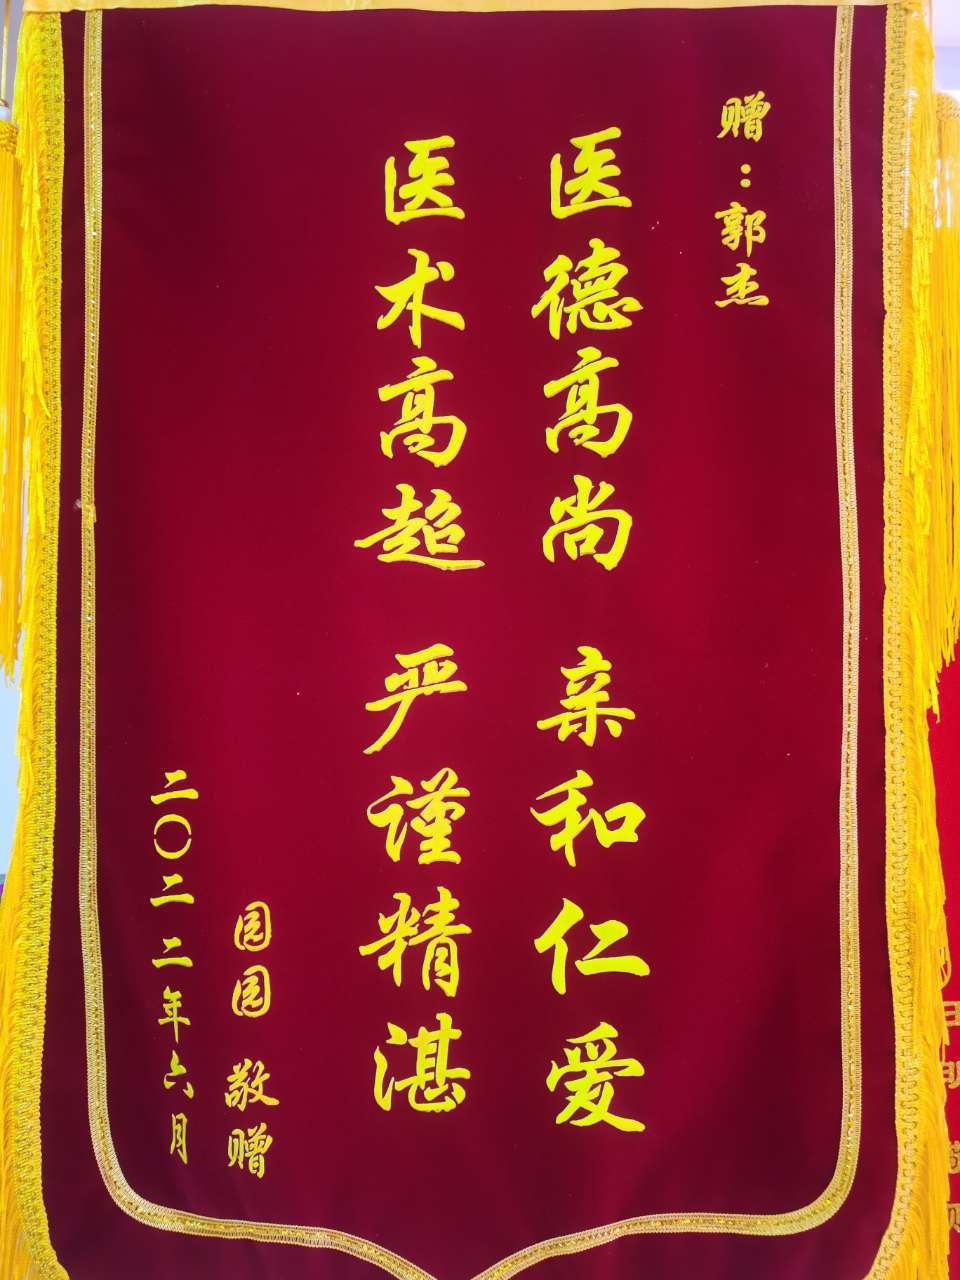 赠：郭杰
医德高尚 亲和仁爱
医术高超 严谨精湛
园园 敬赠
二〇二二年六月